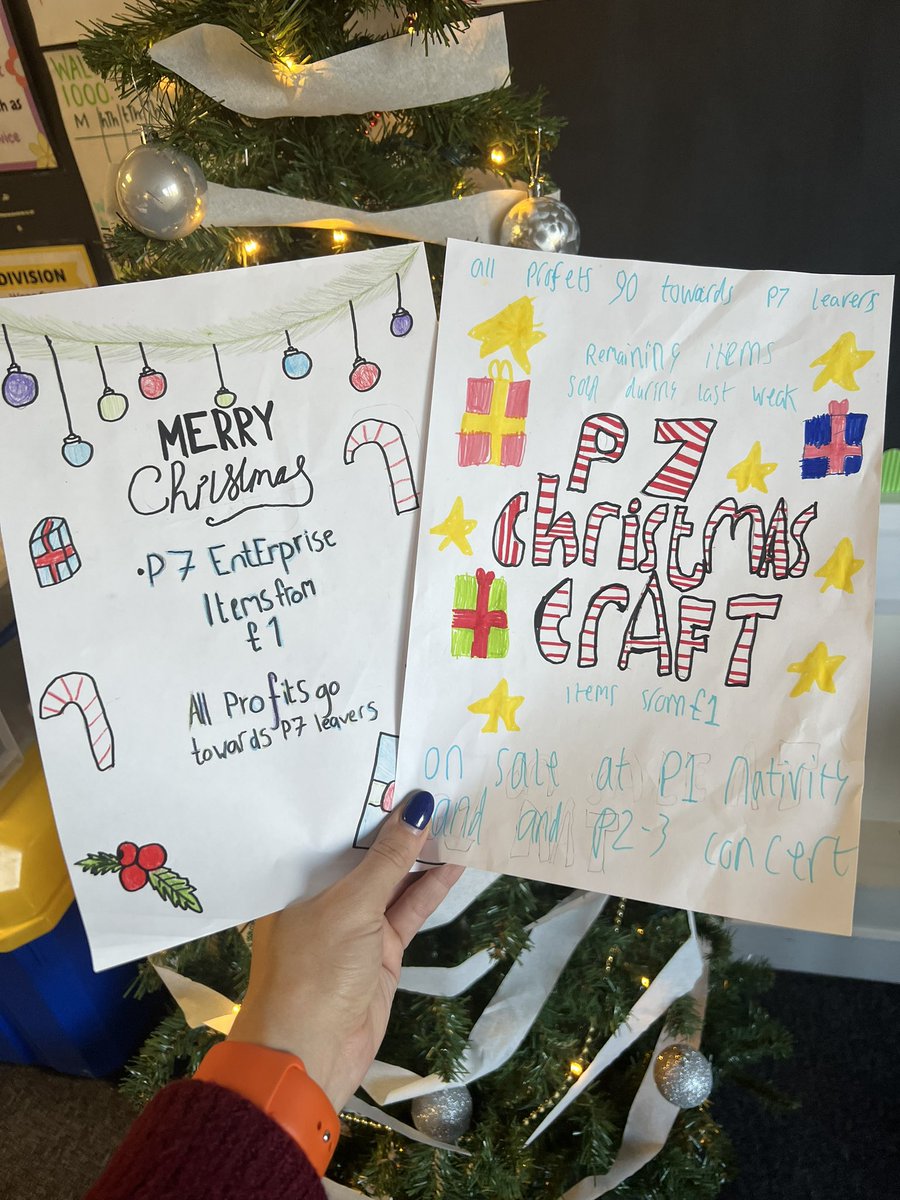 WAL
1000
M
DIVISION
MERRY
Christmas
•P7 EntErprise
Items from
£1
All Profits go
towards P7 leavers
all profets go towards P7 leavers
Remaining items
sold during last weak
P7
Christmas
CRAFT
items from £1
on sale at P1 nativity
and and P2-3 concert